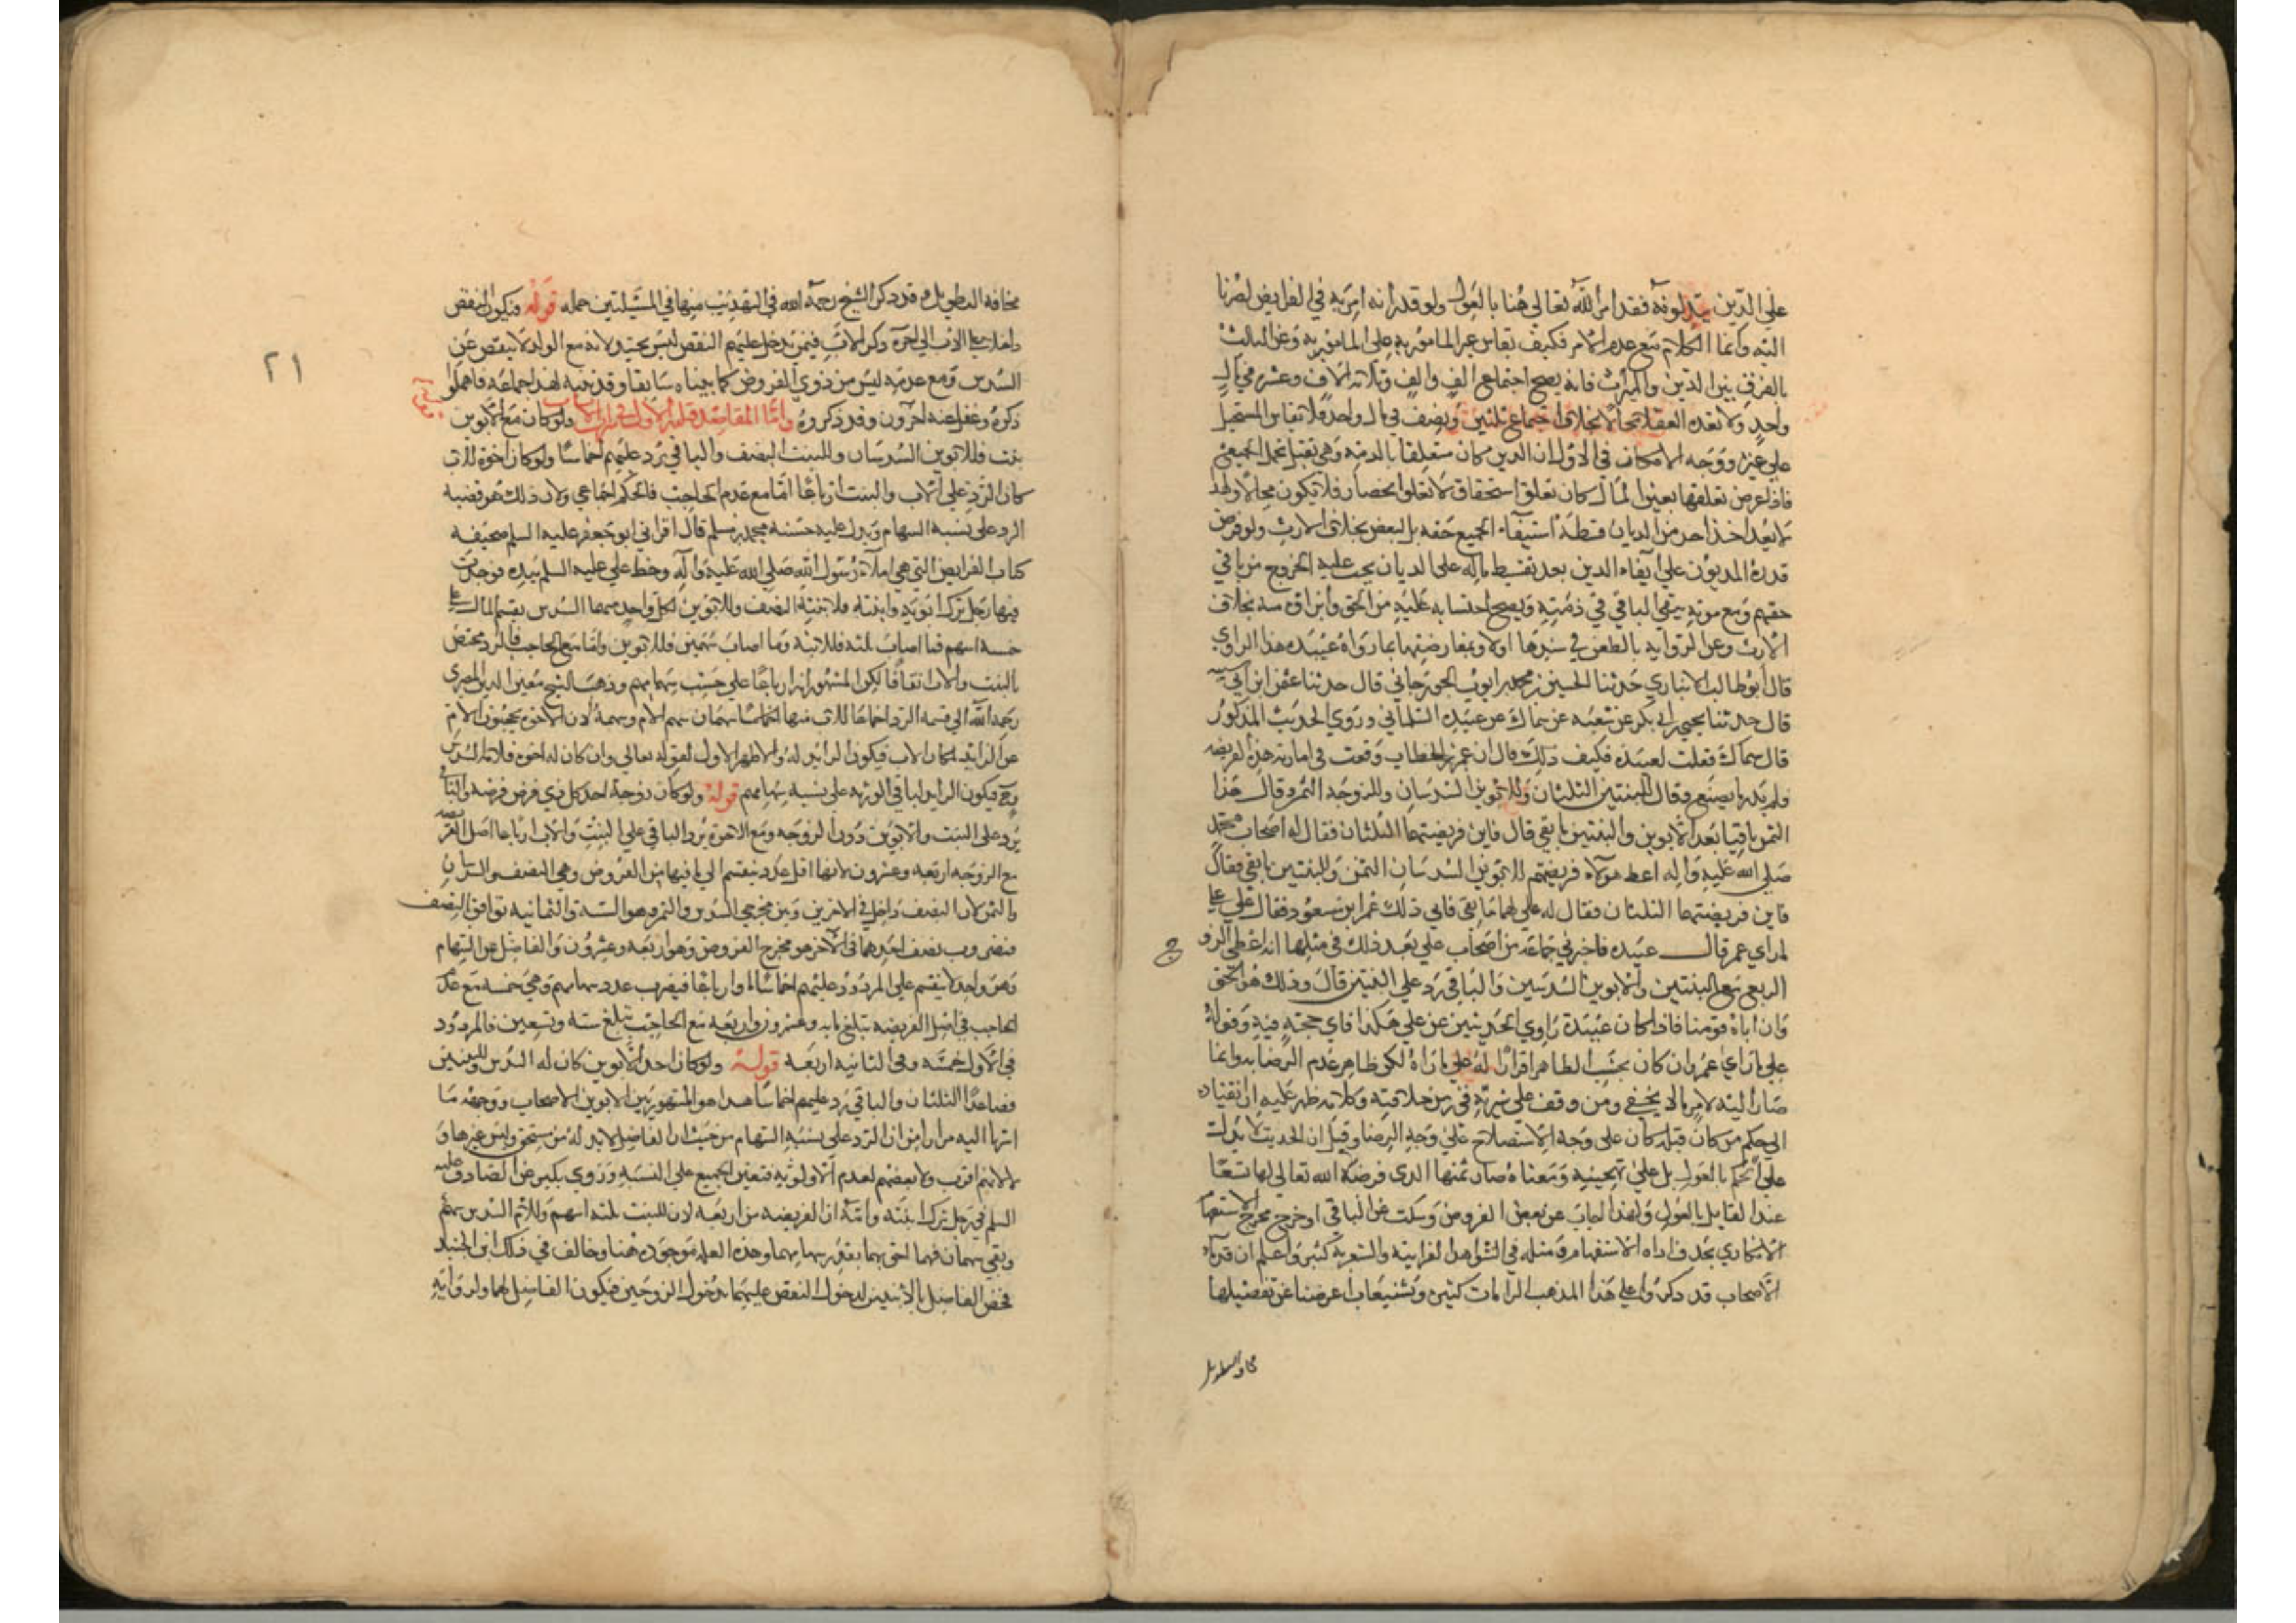 على الدين بتدلونه فقد امر الله تعالى هنا بالعول ولو قدر انه امر به في الفرايض لصرنا
اليه وانما الكلام مع عدم الامر فكيف يقاس غير المامور به على المامور به وعن الثالث
بالفرق بين الدين والميراث فانه يصح اجتماع الف والف وثلاثة الاف وعشرة في مال
واحد ولا يعده العقلا محالا بخلاف اجتماع ثلثين ونصف في مال واحد فلا تقاس المستحيل
على غيره ووجه الامكان في الاول ان الدين كان متعلقا بالذمة وهي تقبل تحمل الجميع
فاذا عرض تعلقها بعين المال كان تعلق استحقاق لا تعلق انحصار فلا يكون محالا ولهذا
لا يعد اخذ احد من الديان قسطه استيفاء لجميع حقه بل لبعض بخلاف الارث ولو فرض
قدرة المديون على ايفاء الدين بعد تقسيط ماله على الديان يجب عليه الخروج من باقي
حقهم ومع موته يبقى الباقي في ذمته ويصح احتسابه عليه من الحق وابراؤه منه بخلاف
الارث وعن الرواية بالطعن في سندها اولا وبمعارضتها بما رواه عبيده هذا الراوي
قال ابو طالب الانباري حدثنا الحسين بن محمد بن ايوب الجوزجاني قال حدثنا عثمن ابن ابي شيبه
قال حدثنا يحيى بن ابي بكر عن شعبه عن سماك عن عبيده السلماني وروى الحديث المذكور
قال سماك فقلت لعبيده فكيف ذلك قال ان عمر بن الخطاب وقعت في امارته هذه الفريضه
فلم يدر ما يصنع وقال للبنتين الثلثان وللابوين السدسان وللزوجة الثمن وقال هذا
الثمن باقيا بعد الابوين والبنتين ما بقي قال فاين فريضتهما الثلثان فقال له اصحاب محمد
صلى الله عليه واله اعط هولاء فريضتهم للابوين السدسان الثمن وللبنتين ما بقي فقال
فاين فريضتهما الثلثان فقال له علي لهما ما بقي فابى ذلك عمر ابن مسعود فقال علي على
ما راى عمر قال عبيده فاخبرني جماعة من اصحاب علي بعد ذلك في مثلها انه اعطى الزوج
الربع مع البنتين والابوين السدسين والباقي رد على البنتين قال وذلك هو الحق
وان اباه قومنا فاذا كان عبيدة راوي الحديثين عن علي هكذا فاي حجة فيه وقوله
على ما راى عمر وان كان بحسب الظاهر اقرارا له على ما راه لكن ظاهر عدم الرضا به وانما
صار اليه لامر ما لا يخفى ومن وقف على سيرته في زمن خلافته وكلامه ظهر عليه ان انقياده
الى حكم من كان قبله كان على وجه الاستصلاح على وجه الرضا وقيل ان الحديث لا يدل
على الحكم بالعول بل على تهجينه ومعناه صار ثمنها الذي فرضه الله تعالى لها تسعا
عند القايل بالعول ولهذا اجاب عن بعض الفروض وسكت عن الباقي او خرج مخرج الاستفهام
الانكاري بحذف اداة الاستفهام ومثله في الشواهد القرانيه والشعرية كثير واعلم ان قدماء
الاصحاب قد ذكروا على هذا المذهب الزامات كثيرة وتشنيعات اعرضنا عن تفصيلها
مخافة التطويل
٢١
مخافة التطويل وقد ذكر الشيخ رحمه الله في التهذيب منها في المسئلتين جمله قوله فيكون النقص
داخلا على الاب الى اخره ذكر الاب فيمن يدخل عليهم النقص ليس بجيد لانه مع الولد لا ينقص عن
السدس ومع عدمه ليس من ذوي الفروض كما بيناه سابقا وقد تنبه لهذا جماعة فاهملوا
ذكره وغفل عنه اخرون وقد ذكروه واما المقاصد فثلثه الاول في ميراث الانساب ولو كان مع الابوين
بنت فللابوين السدسان وللبنت النصف والباقي يرد عليهم اخماسا ولو كان اخوة للاب
كان الرد على الاب والبنت ارباعا اما مع عدم الحاجب فالحكم اجماعي ولان ذلك هو قضيه
الرد على نسبة السهام ويدل عليه حسنه محمد بن مسلم قال اقراني ابو جعفر عليه السلم صحيفه
كتاب الفرايض التي هي املاء رسول الله صلى الله عليه واله وخط علي عليه السلم بيده فوجدت
فيها رجل ترك ابويه وابنته فلابنته النصف وللابوين لكل واحد منهما السدس يقسم المال على
خمسة اسهم فما اصاب ثلثه فللابنه وما اصاب سهمين فللابوين واما مع الحاجب فالرد مختص
بالبنت والاب اتفاقا لكن المشهور انه ارباعا على حسب سهامهم وذهب الشيخ معين الدين المصري
رحمه الله الى قسمة الرد اخماسا للاب منها سهمان سهم الام وسهمه لان الاخوة يحجبون الام
عن الزايد لمكان الاب فيكون الزايد له والاظهر الاول لقوله تعالى وان كان له اخوة فلامه السدس
فيكون الزايد لباقي الورثه على نسبة سهامهم قوله ولو كان زوجة اخذ كل ذي فرض فرضه والباقي
يرد على البنت والابوين دون الزوجه ومع الاخوة يرد الباقي على البنت والاب ارباعا اصل الفريضه
مع الزوجه اربعه وعشرون لانها اقل عدد ينقسم الى ما فيها من الفروض وهي النصف والسدسان
والثمن لان النصف داخل في الاخرين وبين مخرجي السدس والثمن وهو الستة والثمانيه توافق بالنصف
فنضرب نصف احدهما في الاخر هو مخرج الفروض وهو اربعه وعشرون والفاضل عن السهام
وهو واحد لا ينقسم على المردود عليهم اخماسا او ارباعا فيضرب عدد سهامهم وهي خمسه مع عدم
الحاجب في اصل الفريضه تبلغ مايه وعشرون واربعه مع الحاجب تبلغ ستة وتسعين فالمردود
في الاول خمسة وفي الثانيه اربعة قوله ولو كان احد الابوين كان له السدس وللبنتين
فصاعدا الثلثان والباقي يرد عليهم اخماسا هذا هو المشهور بين الاصحاب ووجهه ما
اشرنا اليه مرارا من ان الرد على نسبة السهام من حيث ان الفاضل لابد له من مستحق وليس غيرها و
لا لانهم اقرب ولا بعضهم لعدم الاولويه فتعين الجميع على النسبة وروى بكير عن الصادق عليه
السلم في رجل ترك ابنته وامه ان الفريضه من اربعه لان للبنت ثلثه اسهم وللام السدس سهم
وبقي سهمان فهما احق بهما بقدر سهامهما وهذه العله موجوده هنا وخالف في ذلك ابن الجنيد
فخص الفاضل بالابنتين لدخول النقص عليهما بدخول الزوجين فيكون الفاضل لهما ولرواية